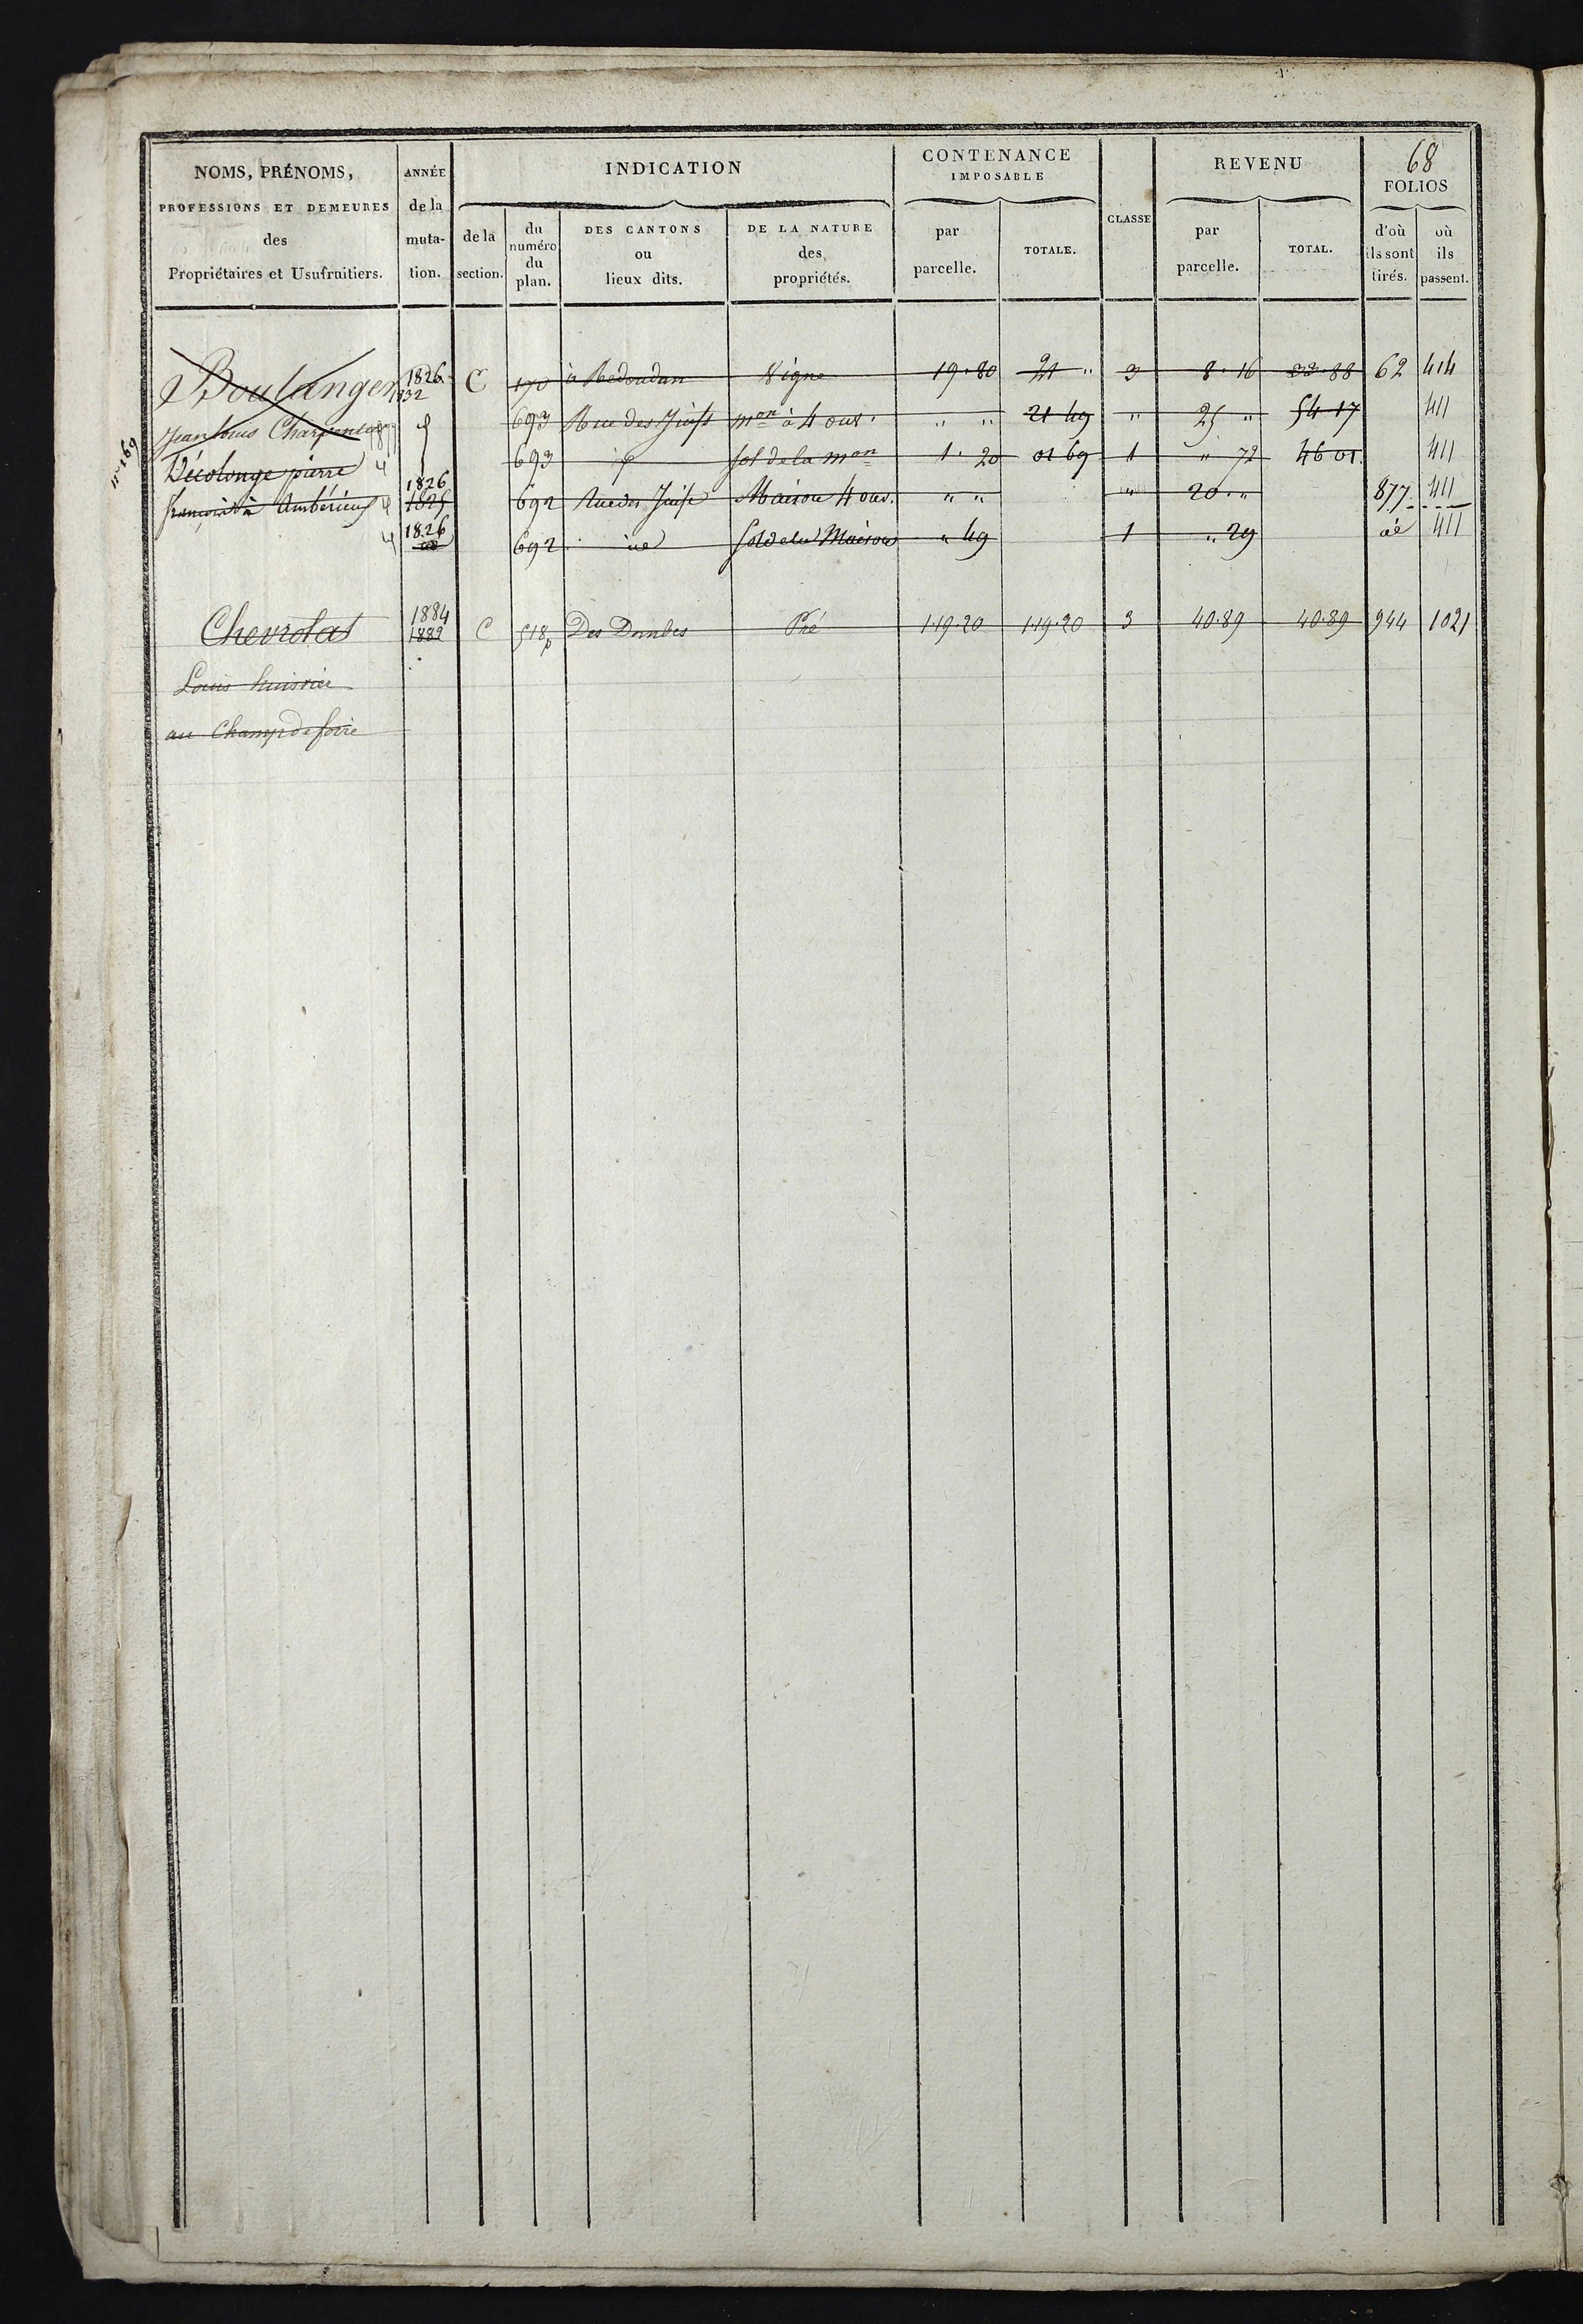 68
NOMS, PRÉNOMS, PROFESSIONS ET DEMEURES des Propriétaires et Usufruitiers.
ANNÉE de la muta-tion.
INDICATION
de la section.
du numéro du plan.
DES CANTONS ou lieux dits.
DE LA NATURE des propriétés.
CONTENANCE IMPOSABLE
par parcelle.
TOTALE.
CLASSE
REVENU
par parcelle.
TOTAL.
FOLIOS
d'où ils sont tirés.
où ils passent.
Boulanger 1826 1832 C 170 à Redoudan Vigne 19·80 21 " 3 8·16 33·88 62 414
Jean Louis Charpentier 693 Rue des Juifs mon à 4 ouv. " " 21 49 " 25 " 54 17 411
n° 169
Décolonge pierre 693 sol de la mon 1·20 01 69 1 " 72 46 01 411
françois à Ambérieux 1826 1825 692 Rue des Juifs Maison 4 ouv. " " " 20 " 877 411
1826 id 692 id Sol de la Maison " 49 1 " 29 id 411
Chevrolat 1884 1882 C 518p Des Dombes Pré 1·19·20 1·19·20 3 40·89 40·89 944 1021
Louis huissier
au Champ de foire